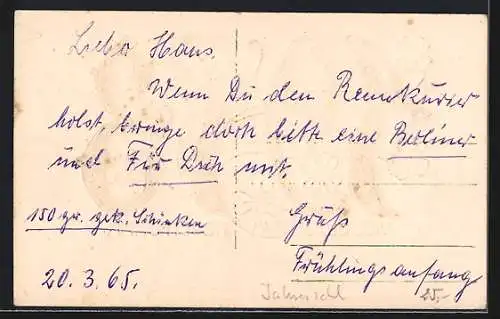 Lieber Hans.
Wenn Du den Rennkurier
holst, bringe doch bitte eine Berliner
und Für Dich mit.
150 gr. gek. Schinken
Gruß
Frühlingsanfang
20.3.65.
25,-